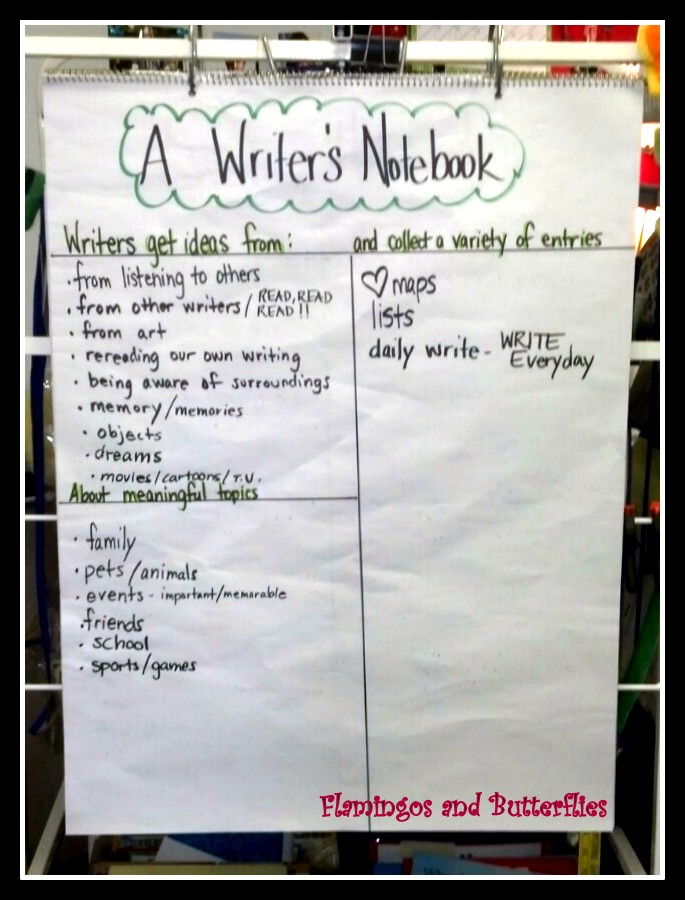 A Writer's Notebook
Writers get ideas from:
· from listening to others
· from other writers/ READ, READ
READ!!
· from art
· rereading our own writing
· being aware of surroundings
· memory/memories
· objects
· dreams
· movies/cartoons/T.V.
About meaningful topics
· family
· pets/animals
· events - important/memorable
· friends
· school
· sports/games
and collect a variety of entries
♡ maps
lists
daily write - WRITE
Everyday
Flamingos and Butterflies